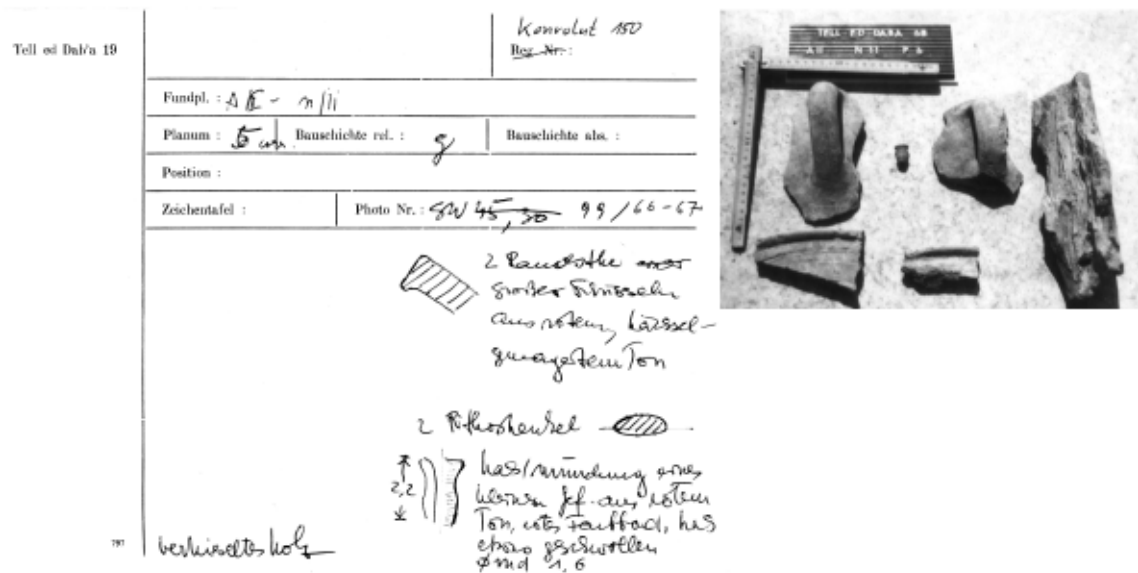 Tell ed Dab'a 19
Konvolut 150
Reg. Nr. :
Fundpl. : A II - n/11
Planum : 5 Bauschichte rel. : g Bauschichte abs. :
Position :
Zeichentafel : Photo Nr. : SW 45, 30 99/66-67
2 Randstke einer
großer Schüsseln
aus rotem, häcksel-
gemagertem Ton
2 Pithoshenkel
2,2
Hals/mündung eines
kleinen Gef. aus rotem
Ton, rotes Farbbad, Hals
etwas geschwollen
Ømd 1,6
verkieseltes Holz
797
TELL-ED-DABA 68
A II N 11 P 6